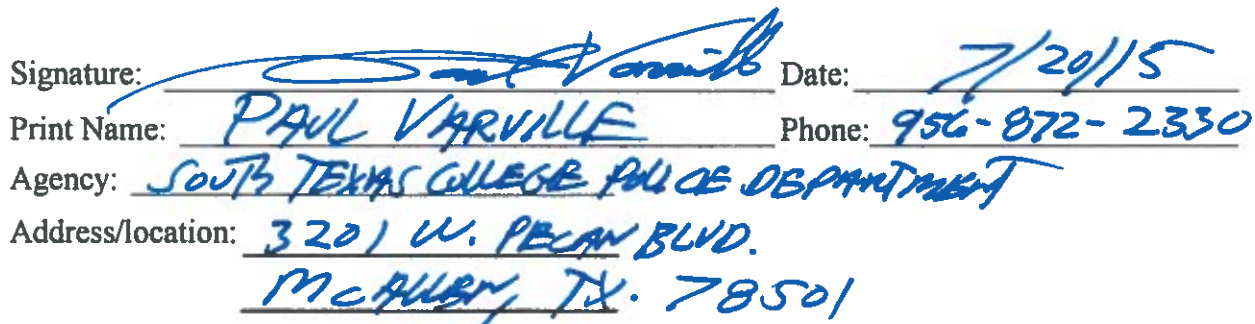 Signature: Paul Varville Date: 7/20/15
Print Name: PAUL VARVILLE Phone: 956-872-2330
Agency: SOUTH TEXAS COLLEGE POLICE DEPARTMENT
Address/location: 3201 W. PECAN BLVD.
McALLEN, TX. 78501